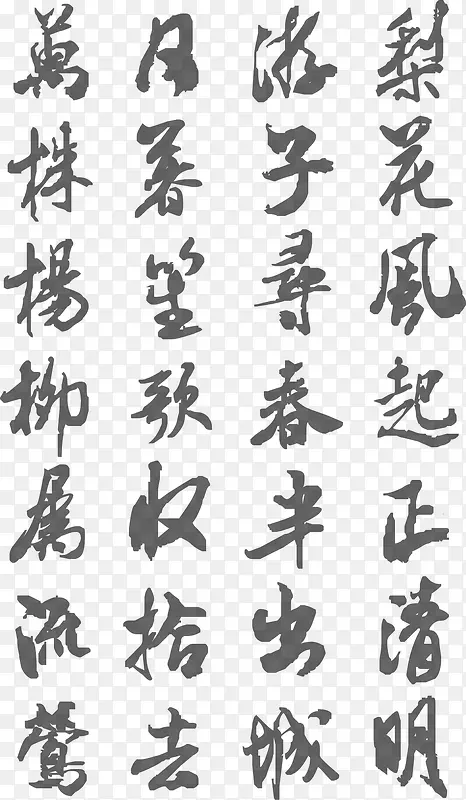 梨花風起正清明
游子尋春半出城
日暮笙歌收拾去
萬株楊柳属流鶯